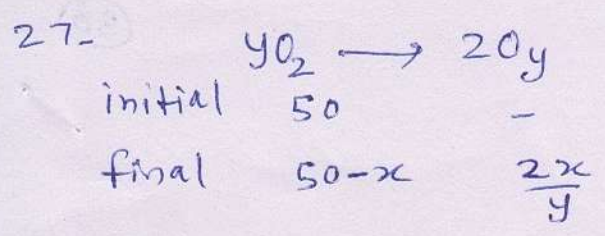 27- yO₂ → 2Oy
initial 50 -
final 50-x 2x/y